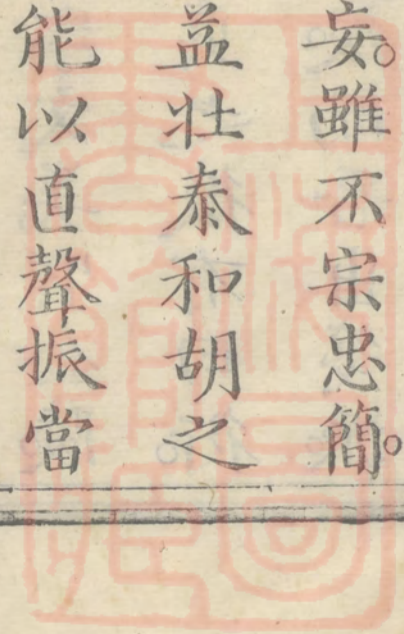 妄。雖不宗忠簡。
益壯泰和胡之
能以直聲振當